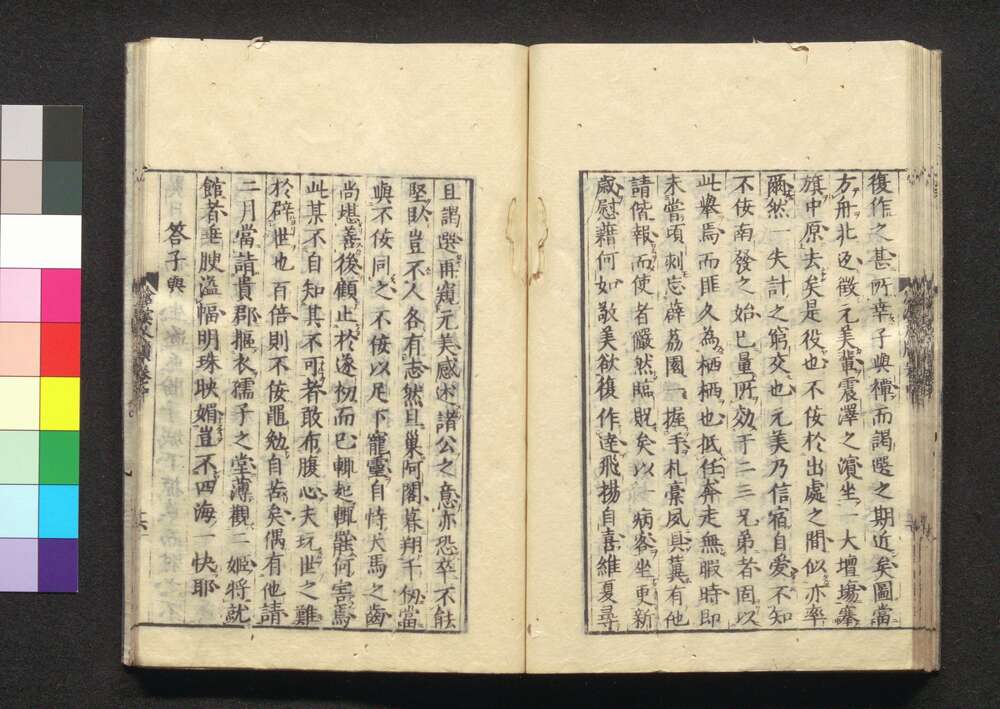 復作之甚所幸子與禫而謁選之期近矣圖當
方舟北迓徵元美輩震澤之濱坐一大增塲搴
旗中原去矣是役也不佞於出處之間似亦率
爾然一失計之窮交也元美乃信宿自愛不知
不佞南發之始已量所効于二三兄弟者固以
此舉焉而匪久為栖栖也抵任奔走無暇時即
未嘗頃刻忘薜荔園一握手札橐夙具冀有他
請偕報而使者儼然臨貺矣以一病客坐更新
歲慰藉何如敬美欲復作達飛揚自喜維夏尋
且謁選再窺元美感於諸公之意亦恐卒不能
堅臥豈不人各有志然旦巢阿閣暮翔千仞當
與不佞同之不佞以足下寵靈自恃犬馬之齒
尚堪善後顧止於遂初而已輒起輒罷何害焉
此某不自知其不可者敢布腹心夫玩世之難
於辟世也百倍則不佞黽勉自苦矣偶有他請
二月當請貴郡摳衣孺子之堂薄觀二姬將就
館者垂腴溢幅明珠映媚豈不四海一快耶
答子與